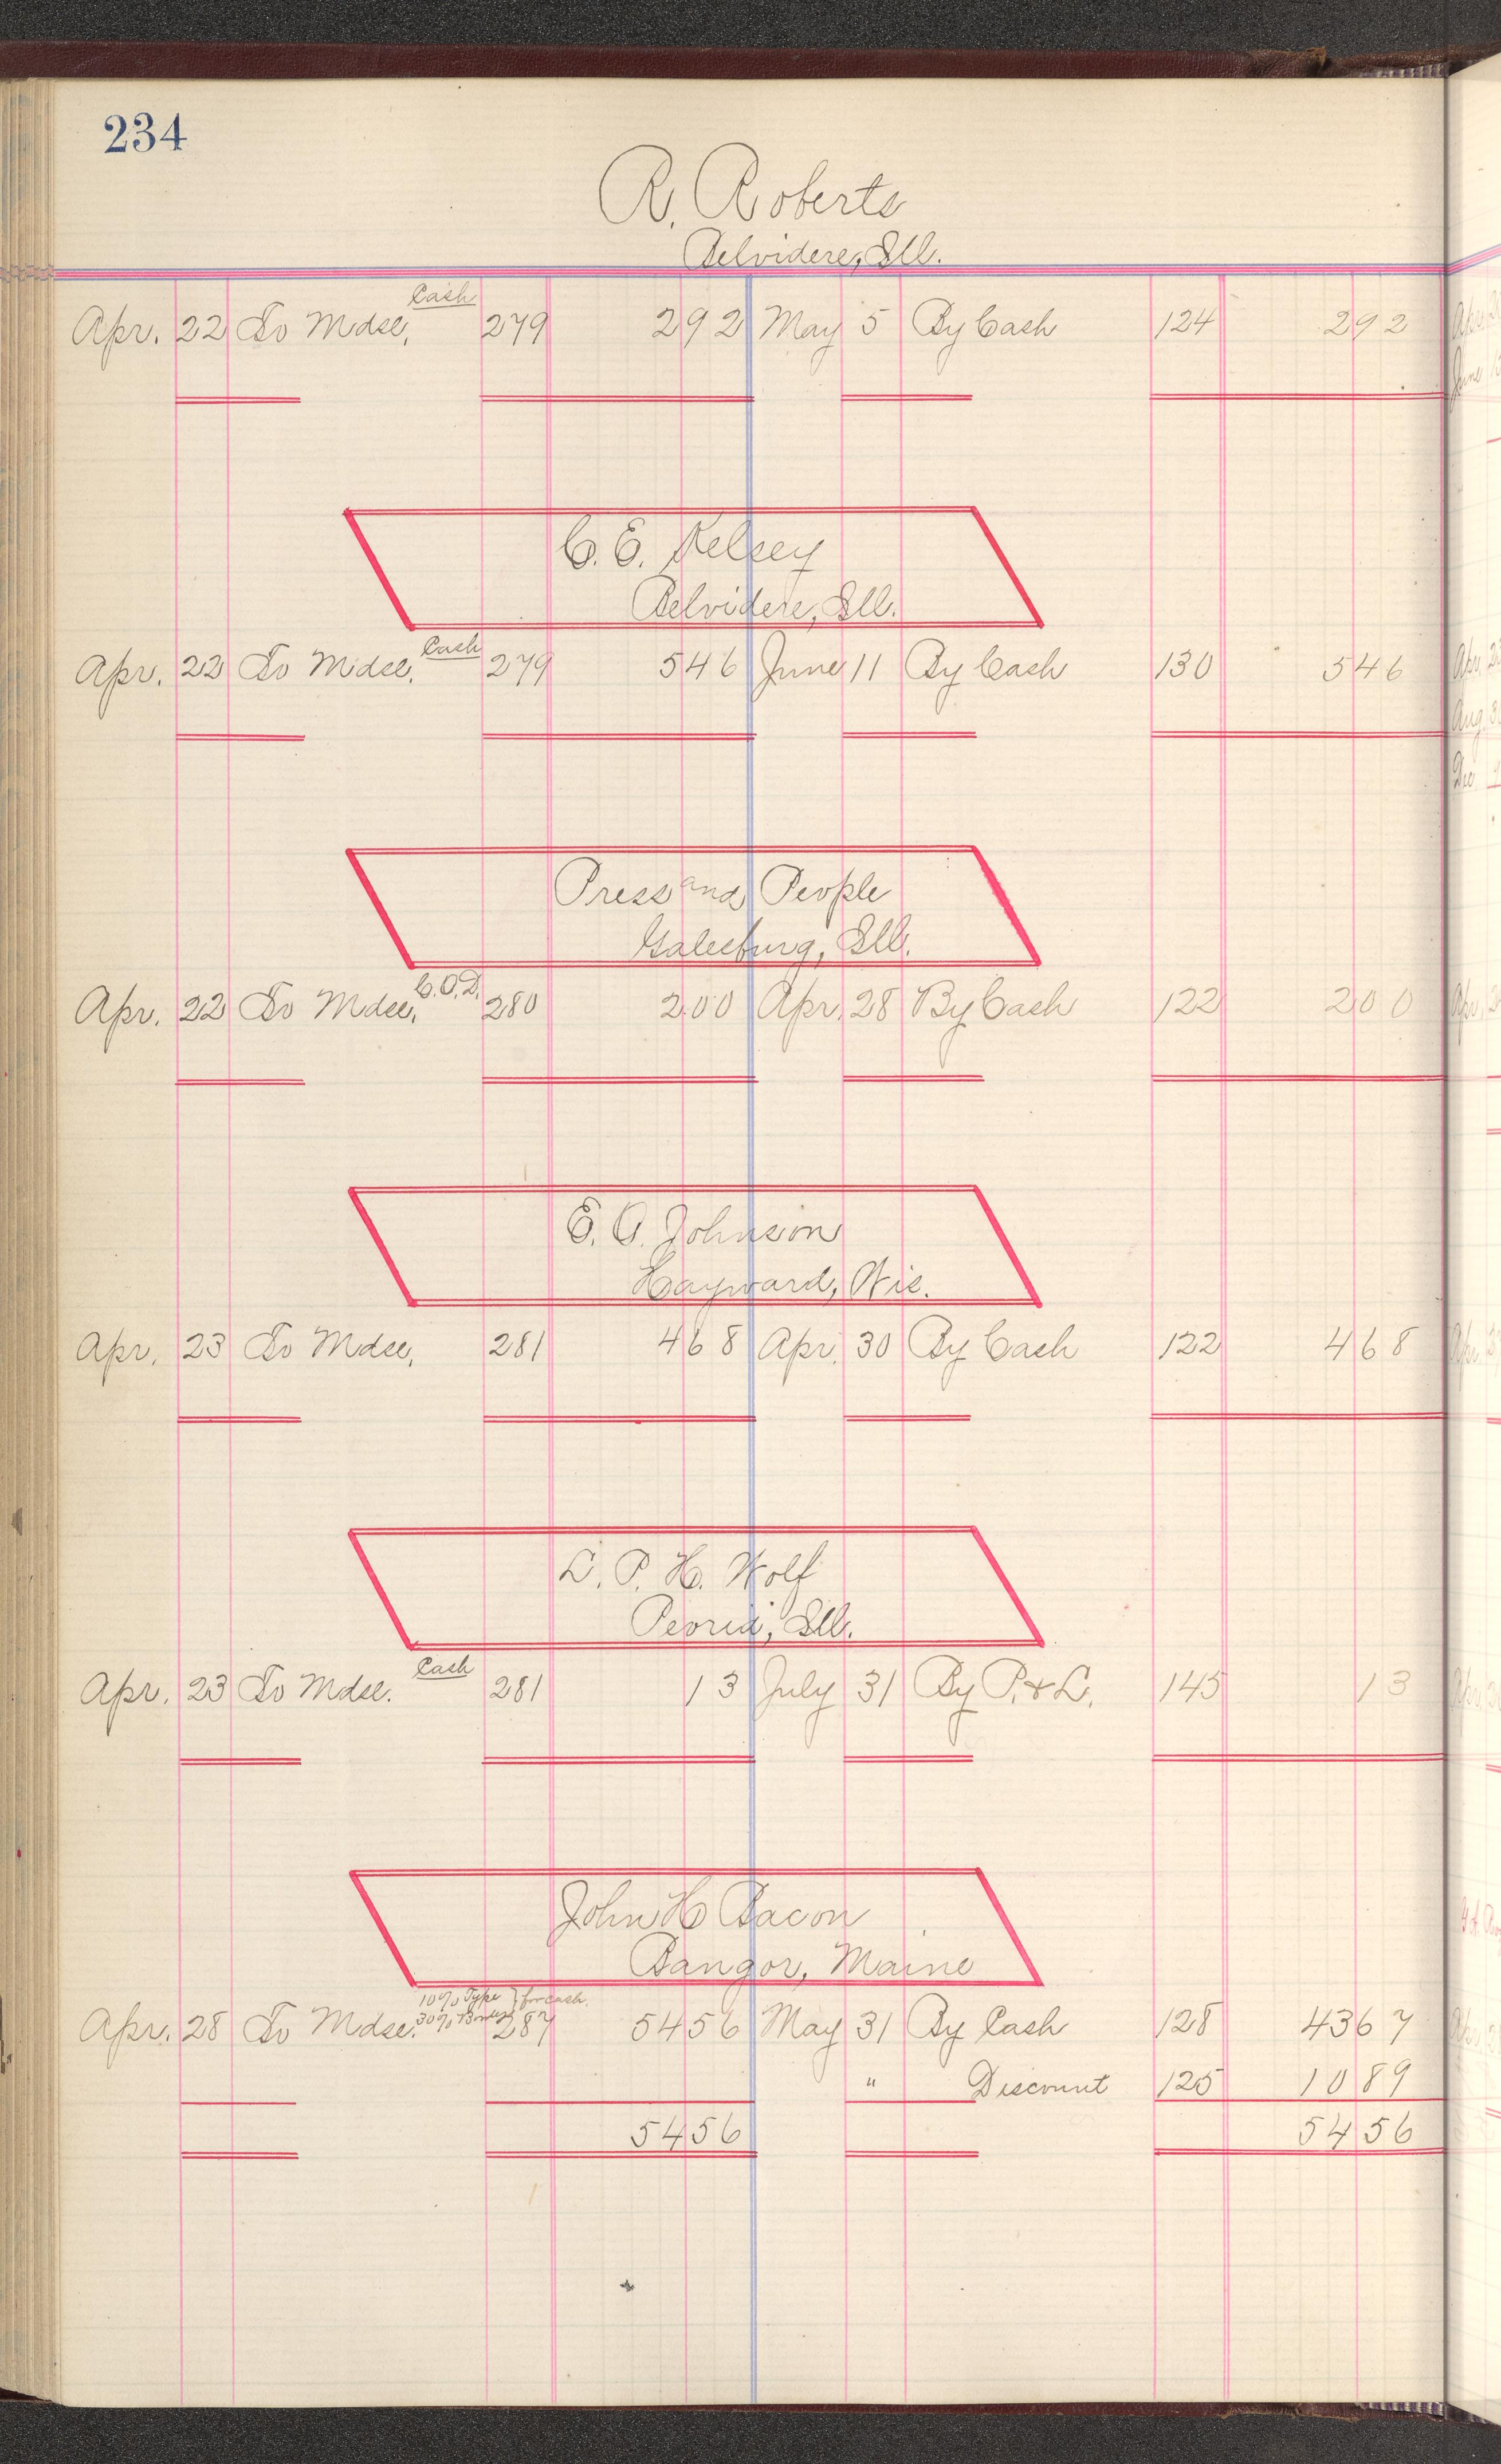 234
R. Roberts
Belvidere, Ill.
Cash
Apr. 22 To Mdse, 279 2 92 May 5 By Cash 124 2 92
C. E. Kelsey
Belvidere, Ill.
Cash
Apr. 22 To Mdse, 279 5 46 June 11 By Cash 130 5 46
Press and People
Galesburg, Ill.
C.O.D.
Apr. 22 To Mdse, 280 2 00 Apr. 28 By Cash 122 2 00
E. O. Johnson
Hayward, Wis.
Apr. 23 To Mdse, 281 4 68 Apr. 30 By Cash 122 4 68
L. P. H. Wolf
Peoria, Ill.
Cash
Apr. 23 To Mdse. 281 13 July 31 By P. & L. 145 13
John H Bacon
Bangor, Maine
10% Type } for cash
30% Border
Apr. 28 To Mdse. 287 54 56 May 31 By Cash 128 43 67
" Discount 125 10 89
54 56 54 56